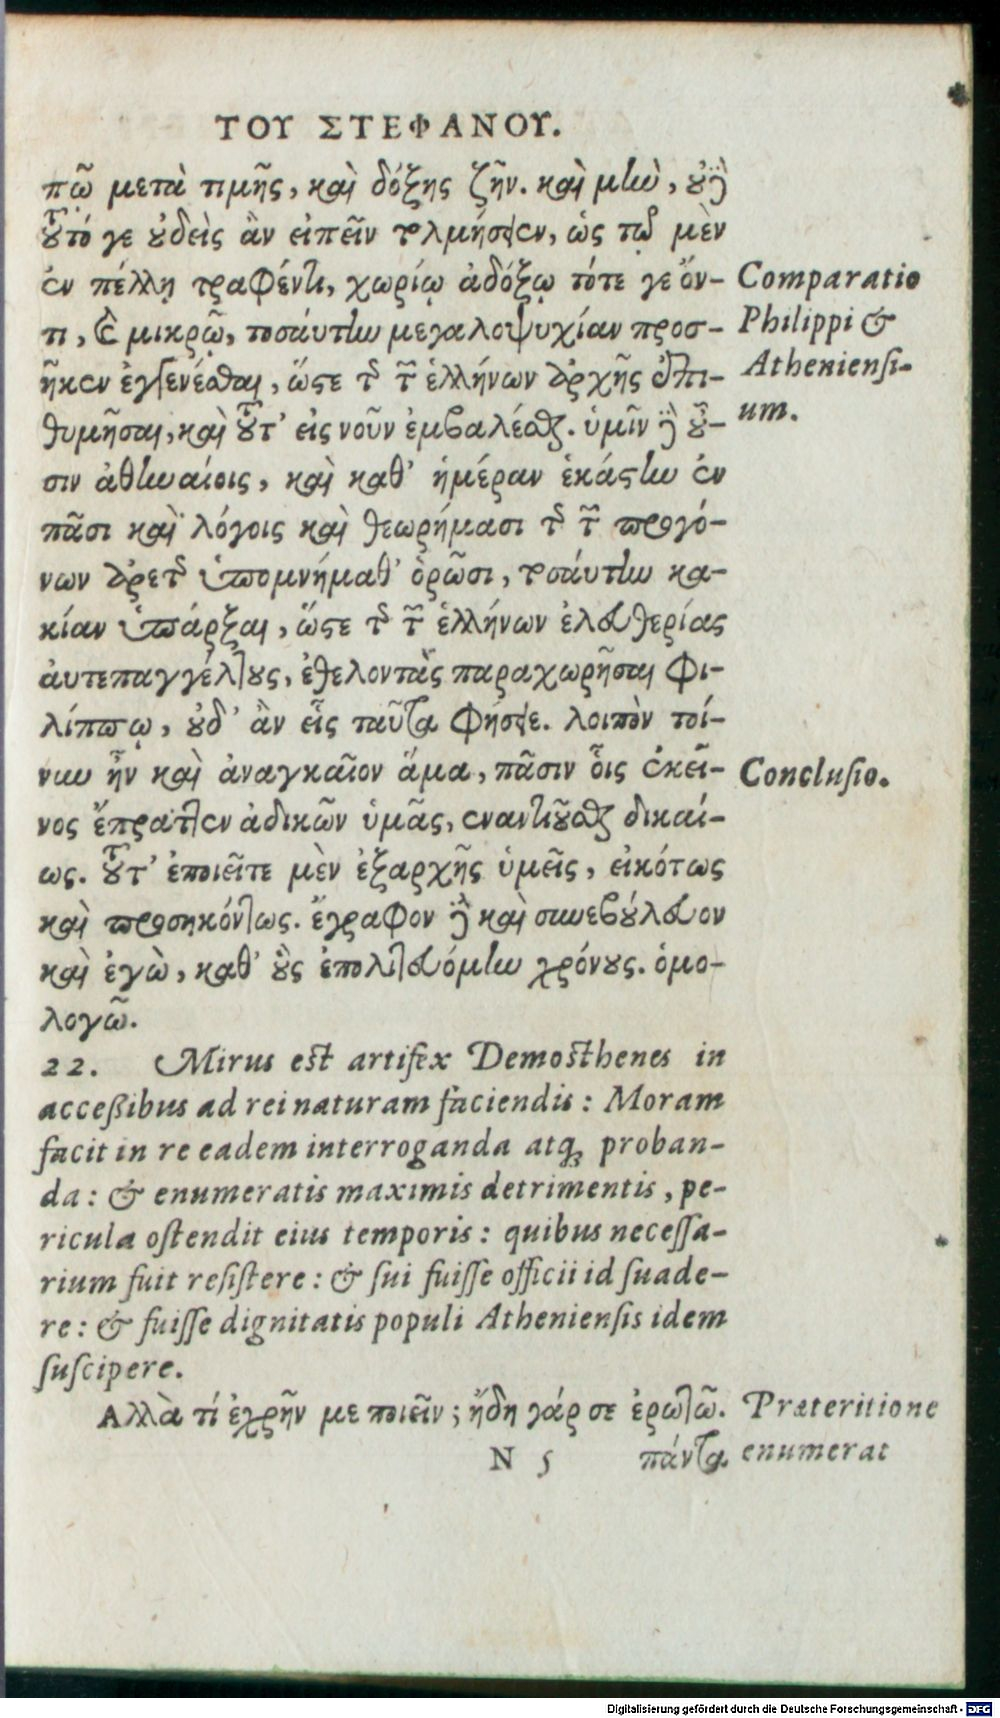 ΤΟΥ ΣΤΕΦΑΝΟΥ.
πῷ μετὰ τιμῆς, καὶ δόξης ζῆν. καὶ μὴν, οὐδὲ
τοῦτό γε οὐδεὶς ἂν εἰπεῖν τολμήσειεν, ὡς τῷ μὲν
ἐν πέλλῃ τραφέντι, χωρίῳ ἀδόξῳ τότε γε ὄν-
τι, καὶ μικρῷ, τοσαύτην μεγαλοψυχίαν προσ-
ῆκεν ἐγγενέσθαι, ὥστε τῆς τῶν ἑλλήνων ἀρχῆς ἐπι-
θυμῆσαι, καὶ τοῦτ' εἰς νοῦν ἐμβαλέσθαι. ὑμῖν δὲ οὖ-
σιν ἀθηναίοις, καὶ καθ' ἡμέραν ἑκάστην ἐν
πᾶσι καὶ λόγοις καὶ θεωρήμασι τῆς τῶν προγό-
νων ἀρετῆς ὑπομνήμαθ' ὁρῶσι, τοσαύτην κα-
κίαν ὑπάρξαι, ὥστε τῆς τῶν ἑλλήνων ἐλευθερίας
αὐτεπαγγέλτους, ἐθελοντὰς παραχωρῆσαι Φι-
λίππῳ, οὐδ' ἂν εἷς ταῦτα φήσειε. λοιπὸν τοί-
νυν ἦν καὶ ἀναγκαῖον ἅμα, πᾶσιν οἷς ἐκεῖ-
νος ἔπραττεν ἀδικῶν ὑμᾶς, ἐναντιοῦσθαι δικαί-
ως. τοῦτ' ἐποιεῖτε μὲν ἐξαρχῆς ὑμεῖς, εἰκότως
καὶ προσηκόντως. ἔγραφον δὲ καὶ συνεβούλευον
καὶ ἐγὼ, καθ' οὓς ἐπολιτευόμην χρόνους. ὁμο-
λογῶ.
Comparatio
Philippi &
Atheniensi-
um.
Conclusio.
22. Mirus est artifex Demosthenes in
accessibus ad rei naturam faciendis: Moram
facit in re eadem interroganda atq; proban-
da: & enumeratis maximis detrimentis, pe-
ricula ostendit eius temporis: quibus necessa-
rium fuit resistere: & sui fuisse officii id suade-
re: & fuisse dignitatis populi Atheniensis idem
suscipere.
Αλλὰ τί ἐχρῆν με ποιεῖν; ἤδη γάρ σε ἐρωτῶ.
Præteritione
enumerat
N 5 πάντα
Digitalisierung gefördert durch die Deutsche Forschungsgemeinschaft - DFG